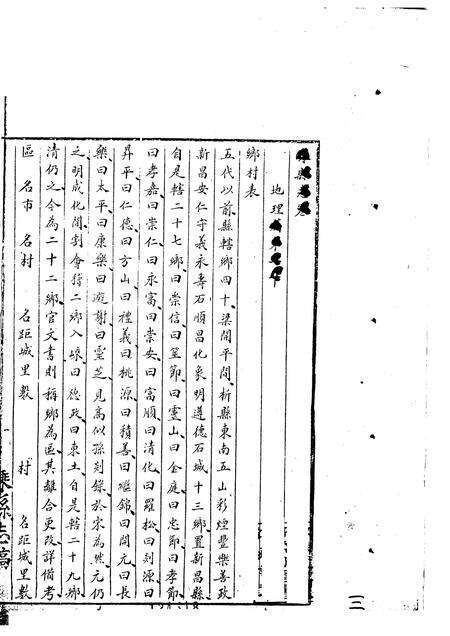 地理
鄉村表
五代以前縣轄鄉四十梁開平間析縣東南五山彩煙豐樂善政
新昌安仁守義永壽石順昌化象明遵德石城十三鄉置新昌縣
自是轄二十七鄉曰崇信曰筮節曰靈山曰金庭曰忠節曰孝節
曰孝嘉曰崇仁曰永富曰崇安曰富順曰清化曰羅松曰剡源曰
昇平曰仁德曰方山曰禮義曰桃源曰積善曰繼錦曰開元曰長
樂曰太平曰康樂曰遊謝曰靈芝見高似孫剡錄於宋為然元仍
之明成化間割會稽二鄉入嵊曰德政曰東土自是轄二十九鄉
清仍之今為二十二鄉官文書則稱鄉為區其離合更改詳備考
區 名市 名村 名距城里數 村 名距城里數
嵊縣志稿
三